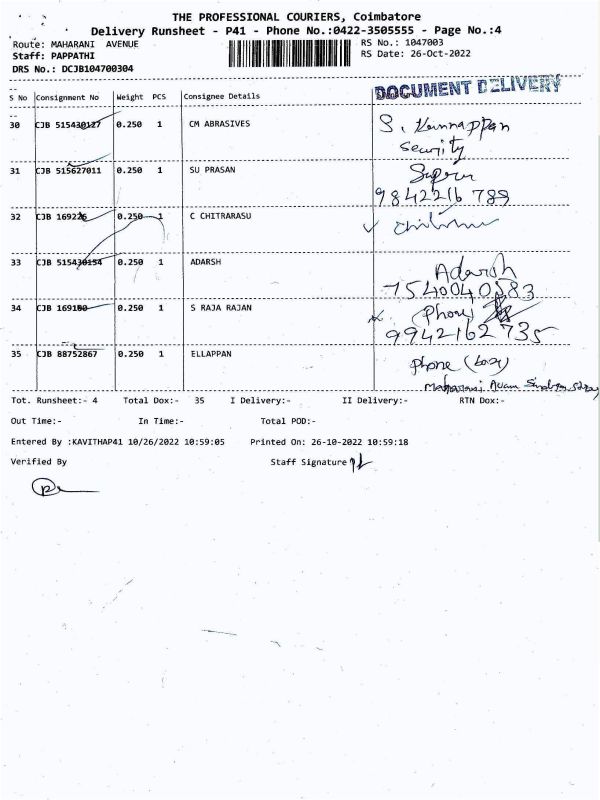 THE PROFESSIONAL COURIERS, Coimbatore
Delivery Runsheet - P41 - Phone No.:0422-3505555 - Page No.:4
Route: MAHARANI AVENUE RS No.: 1047003
Staff: PAPPATHI RS Date: 26-Oct-2022
DRS No.: DCJB104700304
DOCUMENT DELIVERY
S No Consignment No Weight PCS Consignee Details
30 CJB 515430127 0.250 1 CM ABRASIVES S. Kannappan
Security
31 CJB 515627011 0.250 1 SU PRASAN
9842216 789
32 CJB 169226 0.250 1 C CHITRARASU
33 CJB 515430154 0.250 1 ADARSH Adarsh
7540040383
34 CJB 169180 0.250 1 S RAJA RAJAN (Phone)
9942162735
35 CJB 88752867 0.250 1 ELLAPPAN Phone
Maharani
Tot. Runsheet:- 4 Total Dox:- 35 I Delivery:- II Delivery:- RTN Dox:-
Out Time:- In Time:- Total POD:-
Entered By :KAVITHAP41 10/26/2022 10:59:05 Printed On: 26-10-2022 10:59:18
Verified By Staff Signature